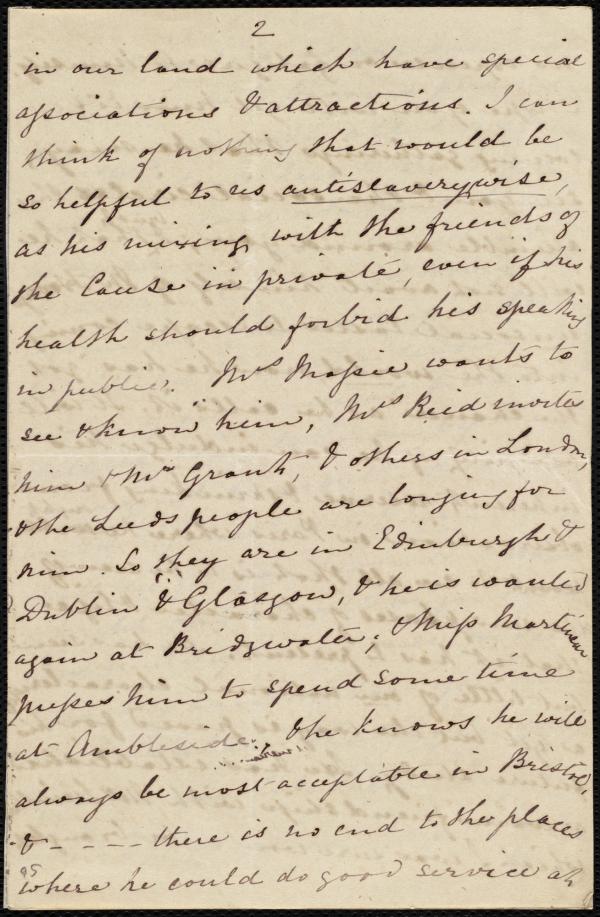 2
in our land which have special
associations & attractions. I can
think of nothing that would be
so helpful to us antislaverywise,
as his mixing with the friends of
the Cause in private, even if his
health should forbid his speaking
in public. Mrs Massie wants to
see & know him, Mrs Reid invites
him & Mr Grant, & others in London,
& the Leeds people are longing for
him. So they are in Edinburgh &
Dublin & Glasgow, & he is wanted
again at Bridgwater; & Miss Martineau
presses him to spend some time
at Ambleside. & he knows he will
always be most acceptable in Bristol,
& - - - - there is no end to the places
where he could do good service as